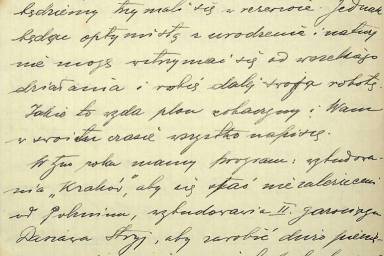 będziemy trzymali się w rezerwie. Jednak
będąc optymistą z urodzenia i natury
nie mogę wstrzymać się od wszelkiego
działania i robię dalej swoją robotę.
Jakie to będą plon zobaczymy i Wam
w swoim czasie wszystko napiszę.
W tym roku mamy program: wybudowa-
nia "Kraków", aby się stać niezależnemi
od Pohmina, wybudowania II.
Stryj, aby zarobić dużo pienię-